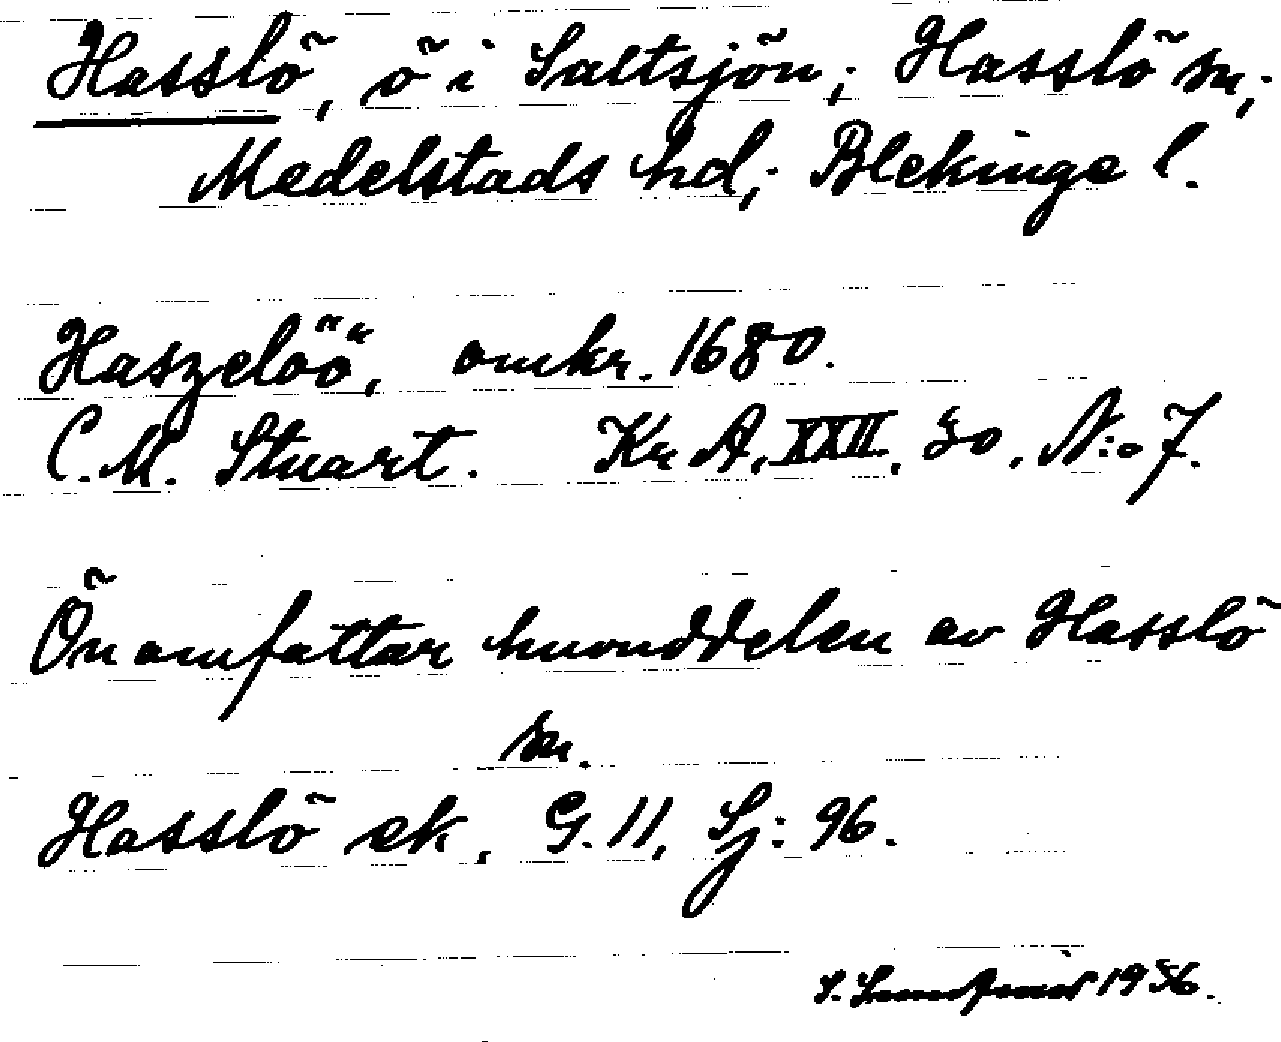 Hasslö, ö i Saltsjön; Hasslö sn;
Medelstads hd; Blekinge l.
Haszelöö, omkr. 1680.
C. M. Stuart. Kr A, XXII, 30, N:o 7.
Ön omfattar huvuddelen av Hasslö
sn.
Hasslö ek, G. 11, Sj: 96.
1956.